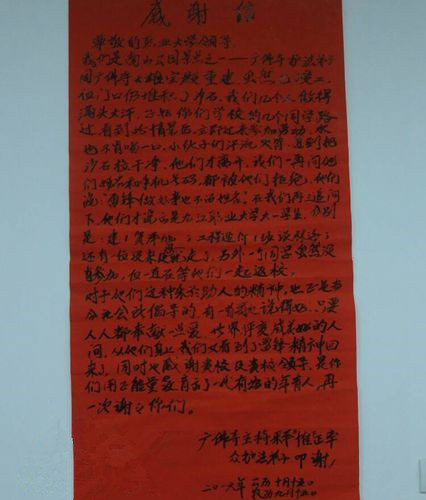 感谢信
尊敬的职业大学领导:
我们是南山公园景点之一——广佛寺护法弟子
同广佛寺大雄宝殿重建虽然了竣工,
但门口仍堆积了沙石,我们几个人做得
满头大汗,于如你们学校的几个同学路
过看到此情景后,立即过来参加劳动,水
也不肯喝一口,小伙子们汗流夹背,直到把
沙石拉干净,他们才离开,我们一再问他
们姓名和手机号码,都被他们拒绝,他们
说:雷锋做好事也不留姓名,在我们再三追问
下,他们才说是九江职业大学大一学生,分别
是:建1
工程造价1班
还有两位没来走了,另外一个同学虽然没
有参加,但一直等他们一起返校。
对于他们这种乐于助人的精神,也正是当
今社会所倡导的,有一首歌说得好,只要
人人都奉献一点爱,世界将变成美好的人
间,从他们身上我们又看到了雷锋精神回
来了,同时也感谢贵校及贵校领导,是你
们用正能量教育了一代有为的年青人,再
一次谢谢你们。
广佛寺主持果奉"惟"正率
众护法弟子叩谢!
二〇一六年 公历十月十五日
农历九月十五日